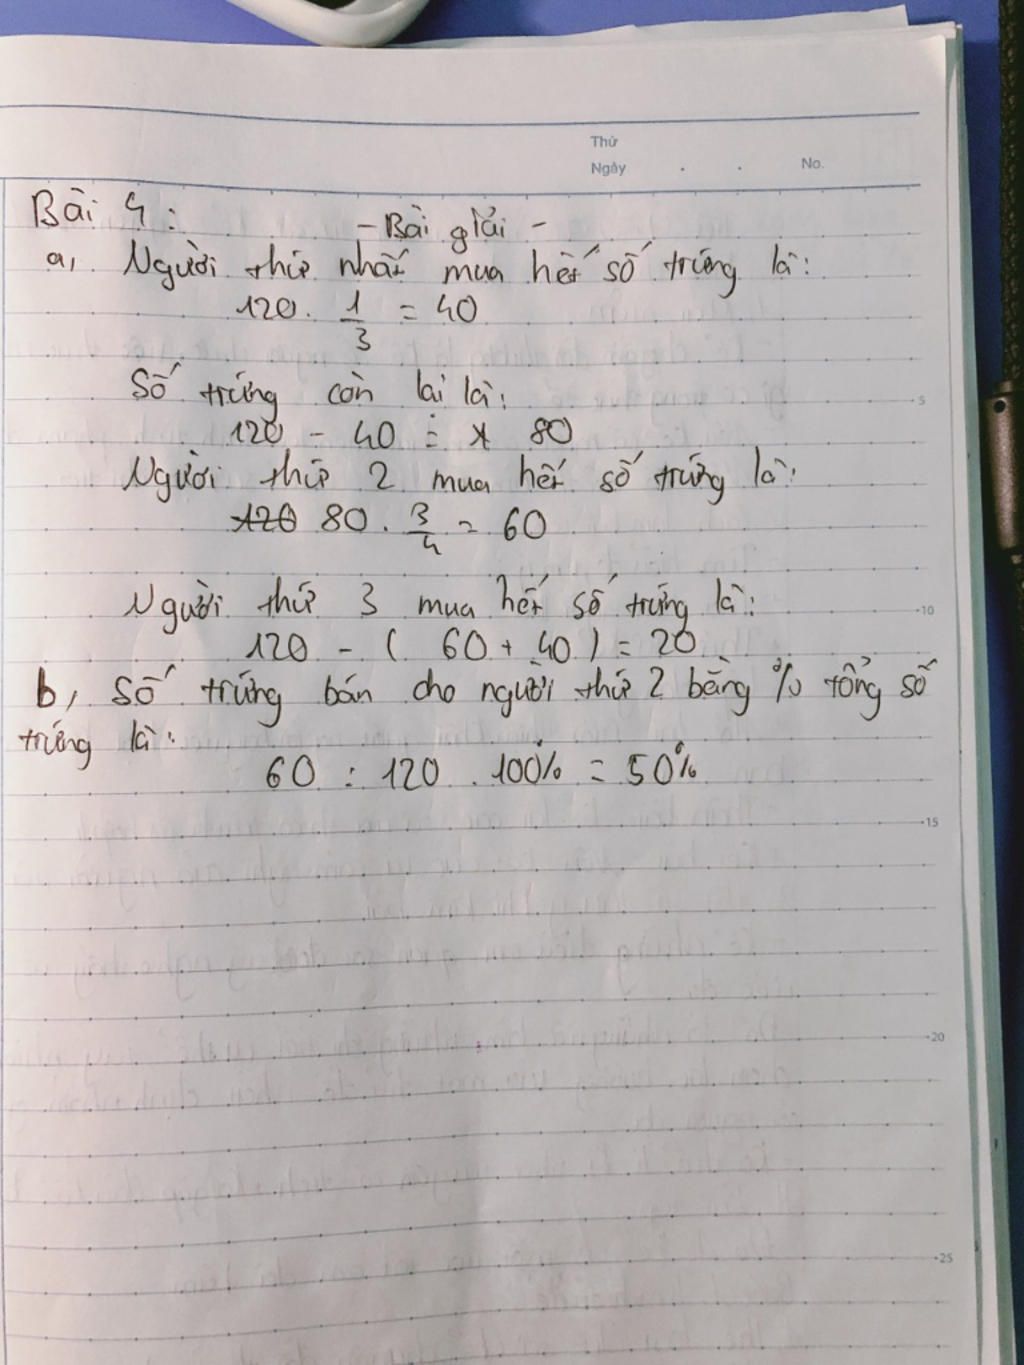 Thứ
Ngày . . No.
Bài 4:
- Bài giải -
a, Người thứ nhất mua hết số trứng là:
120 . 1/3 = 40
Số trứng còn lại là:
120 - 40 = 80
Người thứ 2 mua hết số trứng là:
120 80 . 3/4 = 60
Người thứ 3 mua hết số trứng là:
120 - ( 60 + 40 ) = 20
b, Số trứng bán cho người thứ 2 bằng % tổng số
trứng là:
60 : 120 . 100% = 50%
5
10
15
20
25